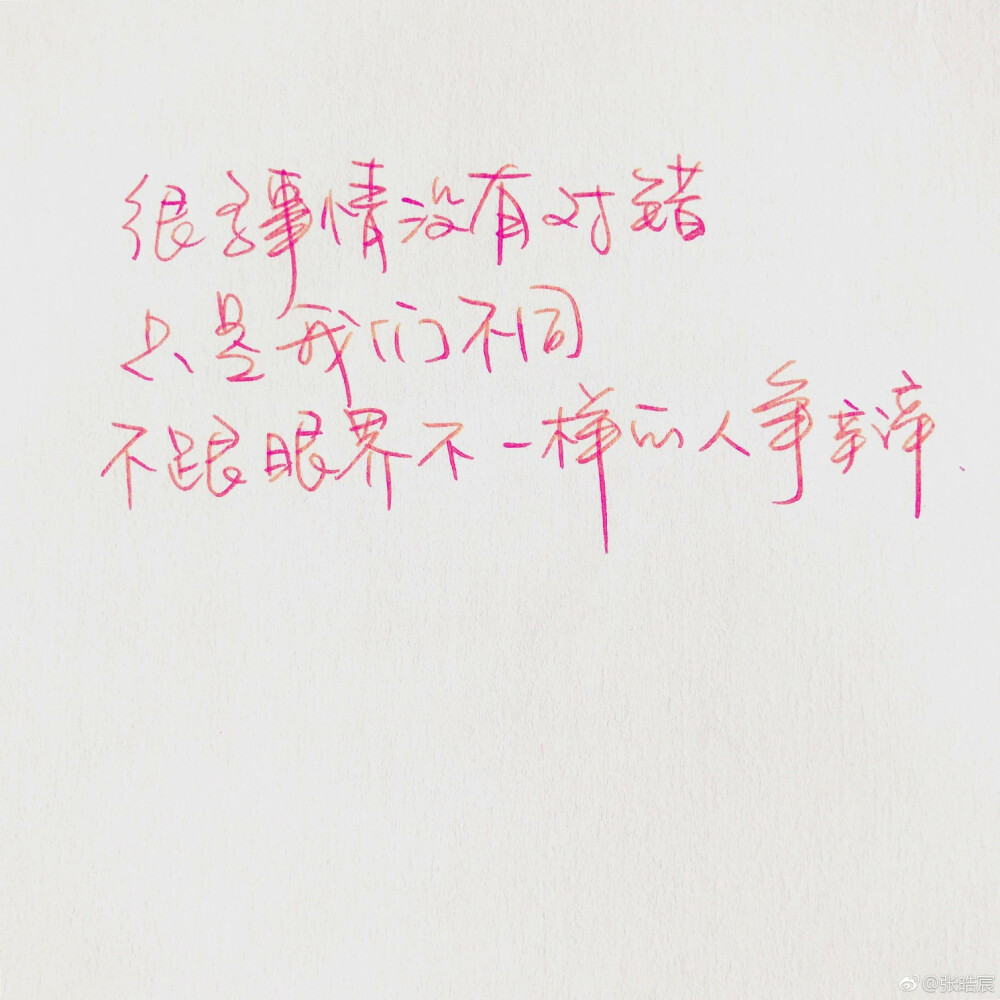 很多事情没有对错
只是我们不同
不跟眼界不一样的人争辩.
@张皓宸